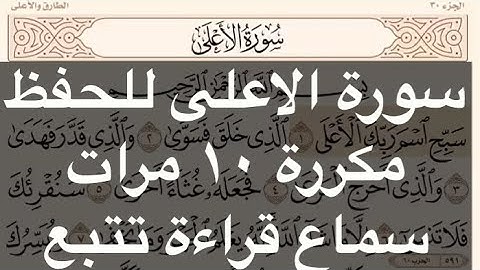 الجزء ٣٠
الطارق والأعلى
سُورَةُ الأَعْلَى
سورة الاعلى للحفظ
سَبِّحِ اسْمَ رَبِّكَ الْأَعْلَى ١ الَّذِي خَلَقَ فَسَوَّى ٢ وَالَّذِي قَدَّرَ فَهَدَى
مكررة ١٠ مرات
٣ وَالَّذِي أَخْرَجَ الْمَرْعَى ٤ فَجَعَلَهُ غُثَاءً أَحْوَى ٥ سَنُقْرِئُكَ
سماع قراءة تتبع
فَلَا تَنسَى
٥٩١
الحزب ٦٠